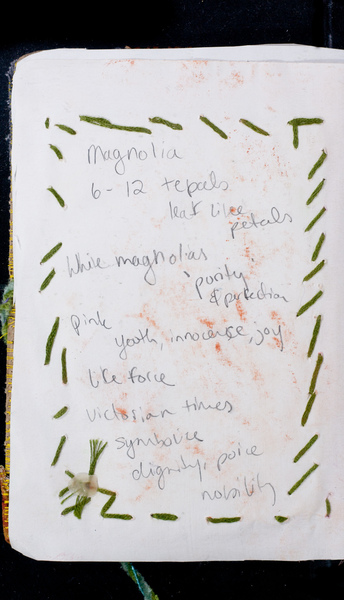 Magnolia
6-12 tepals
leaf like
petals
White magnolias
'purity'
& perfection
pink
youth, innocense, joy
life force
victorian times
symbolize
dignity, poice
nobility